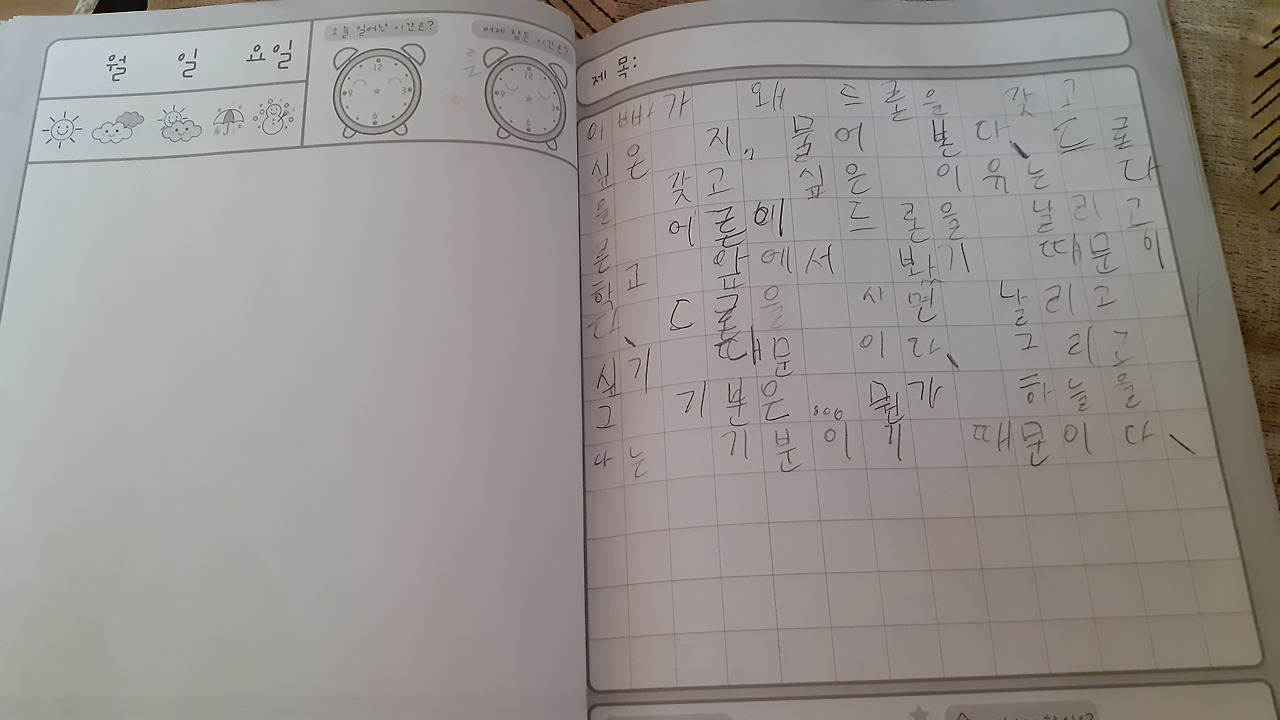 월 일 요일
오늘 일어난 시간은?
어제 잠든 시간은?
제 목:
아빠가 왜 드론을 갖고
싶은 지,, 물어 본다. 드론
을 갖고 싶은 이유는 다
른 어른이 드론을 날리고
학고 앞에서 봤기 때문이
다. 드론을 사면 날리고
싶기 때문이다. 그리고
그 기분은... 뭔가 하늘을
나는 기분이기 때문이다.